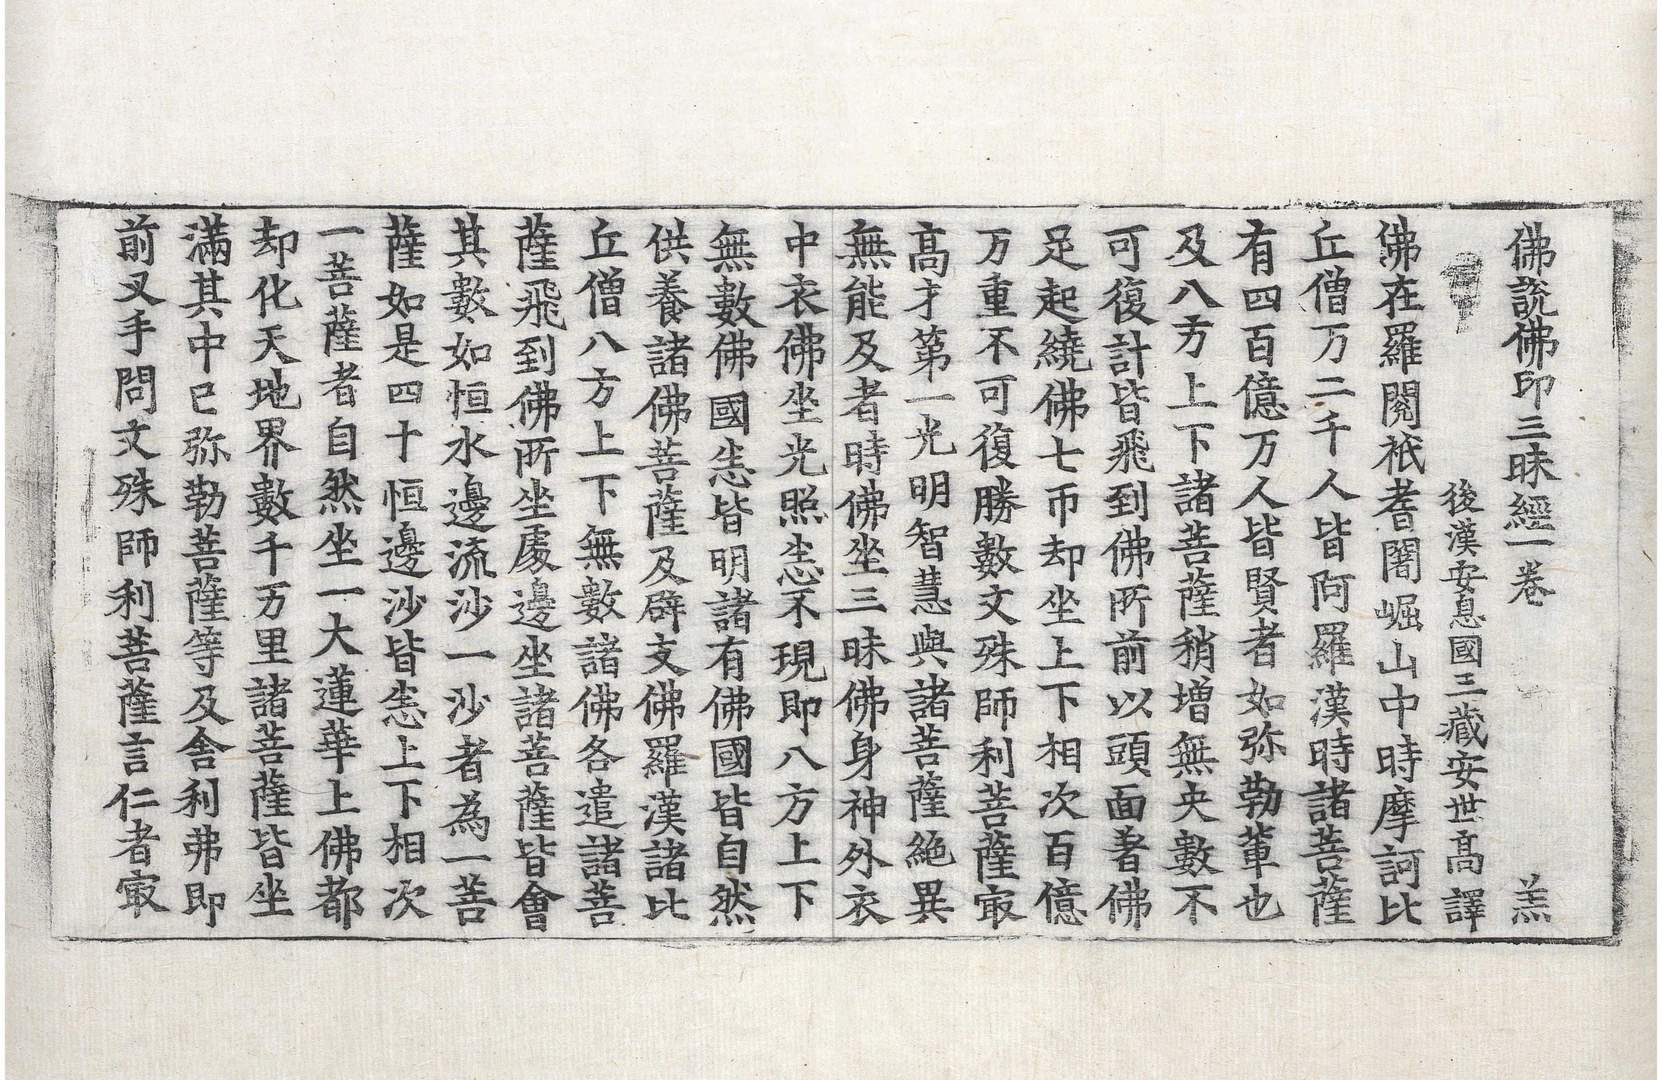 佛說佛印三昧經一卷 羔
後漢安息國三藏安世高譯
佛在羅閱祇耆闍崛山中時摩訶比
丘僧万二千人皆阿羅漢時諸菩薩
有四百億万人皆賢者如弥勒輩也
及八方上下諸菩薩稍增無央數不
可復計皆飛到佛所前以頭面著佛
足起繞佛七帀却坐上下相次百億
万重不可復勝數文殊師利菩薩㝡
高才第一光明智慧與諸菩薩絶異
無能及者時佛坐三昧佛身神外衣
中衣佛坐光照恚不現即八方上下
無數佛國恚皆明諸有佛國皆自然
供養諸佛菩薩及辟支佛羅漢諸比
丘僧八方上下無數諸佛各遣諸菩
薩飛到佛所坐處邊坐諸菩薩皆會
其數如恒水邊流沙一沙者為一菩
薩如是四十恒邊沙皆恚上下相次
一菩薩者自然坐一大蓮華上佛都
却化天地界數千万里諸菩薩皆坐
滿其中已弥勒菩薩等及舍利弗即
前叉手問文殊師利菩薩言仁者㝡